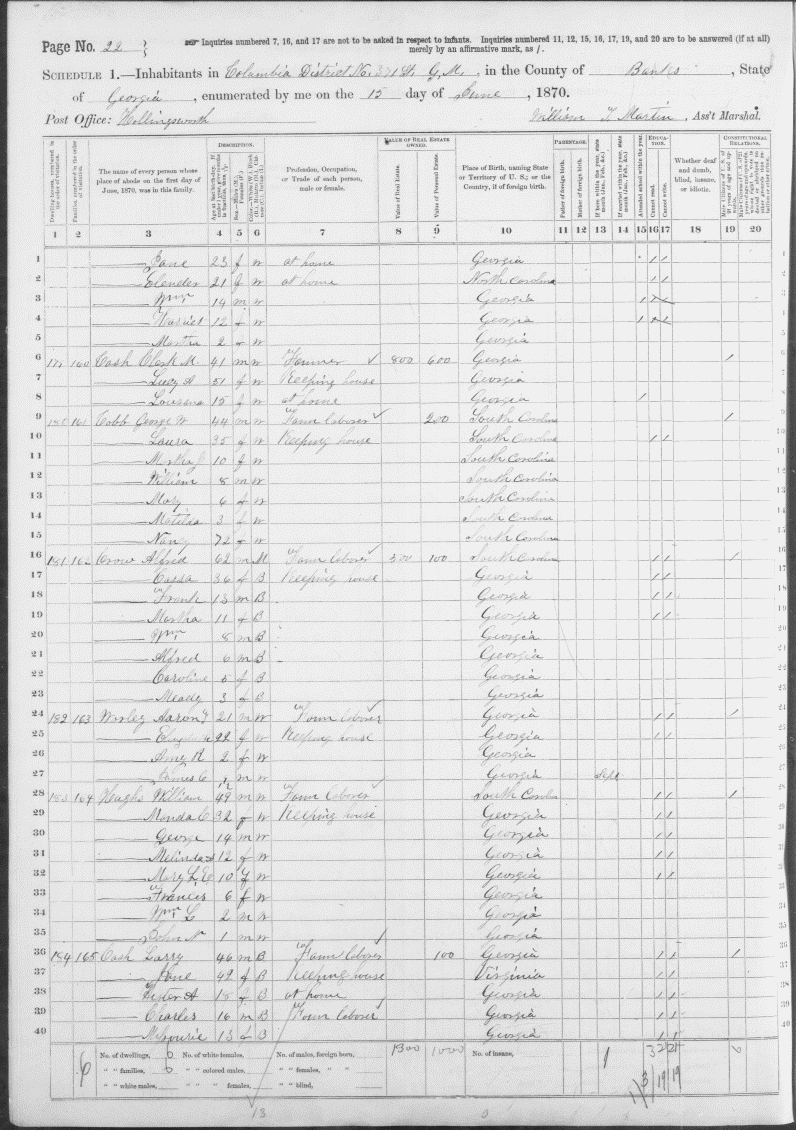 Page No. 22
Inquiries numbered 7, 16, and 17 are not to be asked in respect to infants. Inquiries numbered 11, 12, 15, 16, 17, 19, and 20 are to be answered (if at all)
merely by an affirmative mark, as /.
SCHEDULE 1.—Inhabitants in Columbia District No. 371st G.M., in the County of Banks, State
of Georgia, enumerated by me on the 15 day of June, 1870.
Post Office: Hollingsworth William T Martin, Ass't Marshal.
DESCRIPTION. VALUE OF REAL ESTATE OWNED. PARENTAGE. EDUCATION. CONSTITUTIONAL RELATIONS.
The name of every person whose place of abode on the first day of June, 1870, was in this family.
Profession, Occupation, or Trade of each person, male or female.
Value of Real Estate.
Value of Personal Estate.
Place of Birth, naming State or Territory of U. S.; or the Country, if of foreign birth.
Father of foreign birth.
Mother of foreign birth.
Attended school within the year.
Cannot read.
Cannot write.
Whether deaf and dumb, blind, insane, or idiotic.
1 2 3 4 5 6 7 8 9 10 11 12 13 14 15 16 17 18 19 20
1 Jane 23 f W at home Georgia / / 1
2 Elender 21 f W at home North Carolina / / 2
3 Wm 14 m W Georgia / 3
4 Harriet 12 f W Georgia / 4
5 Martha 2 f W Georgia 5
6 160 Cash Clark M. 41 m W Farmer 800 600 Georgia / 6
7 Lucy A 51 f W Keeping house Georgia 7
8 15 f W at home Georgia / 8
9 180 161 Cobb George W 44 m W Farm laborer 200 South Carolina / 9
10 Laura 35 f W Keeping house South Carolina / / 10
11 Martha J 10 f W South Carolina 11
12 William 8 m W South Carolina 12
13 Mary 6 f W South Carolina 13
14 Matilda 3 f W South Carolina 14
15 Nancy 72 f W South Carolina 15
16 181 162 Crow Alfred 62 m M Farm laborer 500 100 South Carolina / / / 16
17 Cassa 36 f B Keeping house Georgia / / 17
18 Frank 13 m B Georgia / / 18
19 Martha 11 f B Georgia / / 19
20 Wm 8 m B Georgia 20
21 Alfred 6 m B Georgia 21
22 Caroline 5 f B Georgia 22
23 Meady 3 f B Georgia 23
24 182 163 Aaron 21 m W Farm laborer Georgia / / / 24
25 22 f W Keeping house Georgia / / 25
26 Amy R 2 f W Georgia 26
27 James C m W Georgia Sept 27
28 183 164 Heaghs William 49 m W Farm laborer South Carolina / / / 28
29 Manda C 32 f W Keeping house Georgia / / 29
30 George 14 m W Georgia / / 30
31 Melinda 12 f W Georgia / / 31
32 Mary L E 10 f W Georgia / / 32
33 Frances 6 f W Georgia 33
34 Wm L 2 m W Georgia 34
35 John N 1 m W Georgia 35
36 184 165 Cash Larry 46 m B Farm laborer 100 Georgia / / / 36
37 Jane 49 f B Keeping house Virginia / / 37
38 Hester A 18 f B at home Georgia / / 38
39 Charles 16 m B Farm laborer Georgia / / 39
40 Missourie 13 f B Georgia / / 40
No. of dwellings, 6 No. of white females, No. of males, foreign born, 1300 1000 No. of insane, 6
" " families, 6 " " colored males, " " females, " "
" " white males, " " " females, " " blind,
13